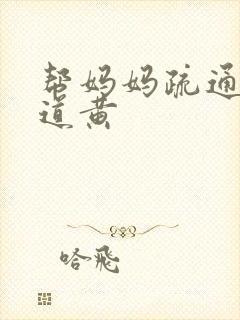 帮妈妈疏通
道黄
哈飛